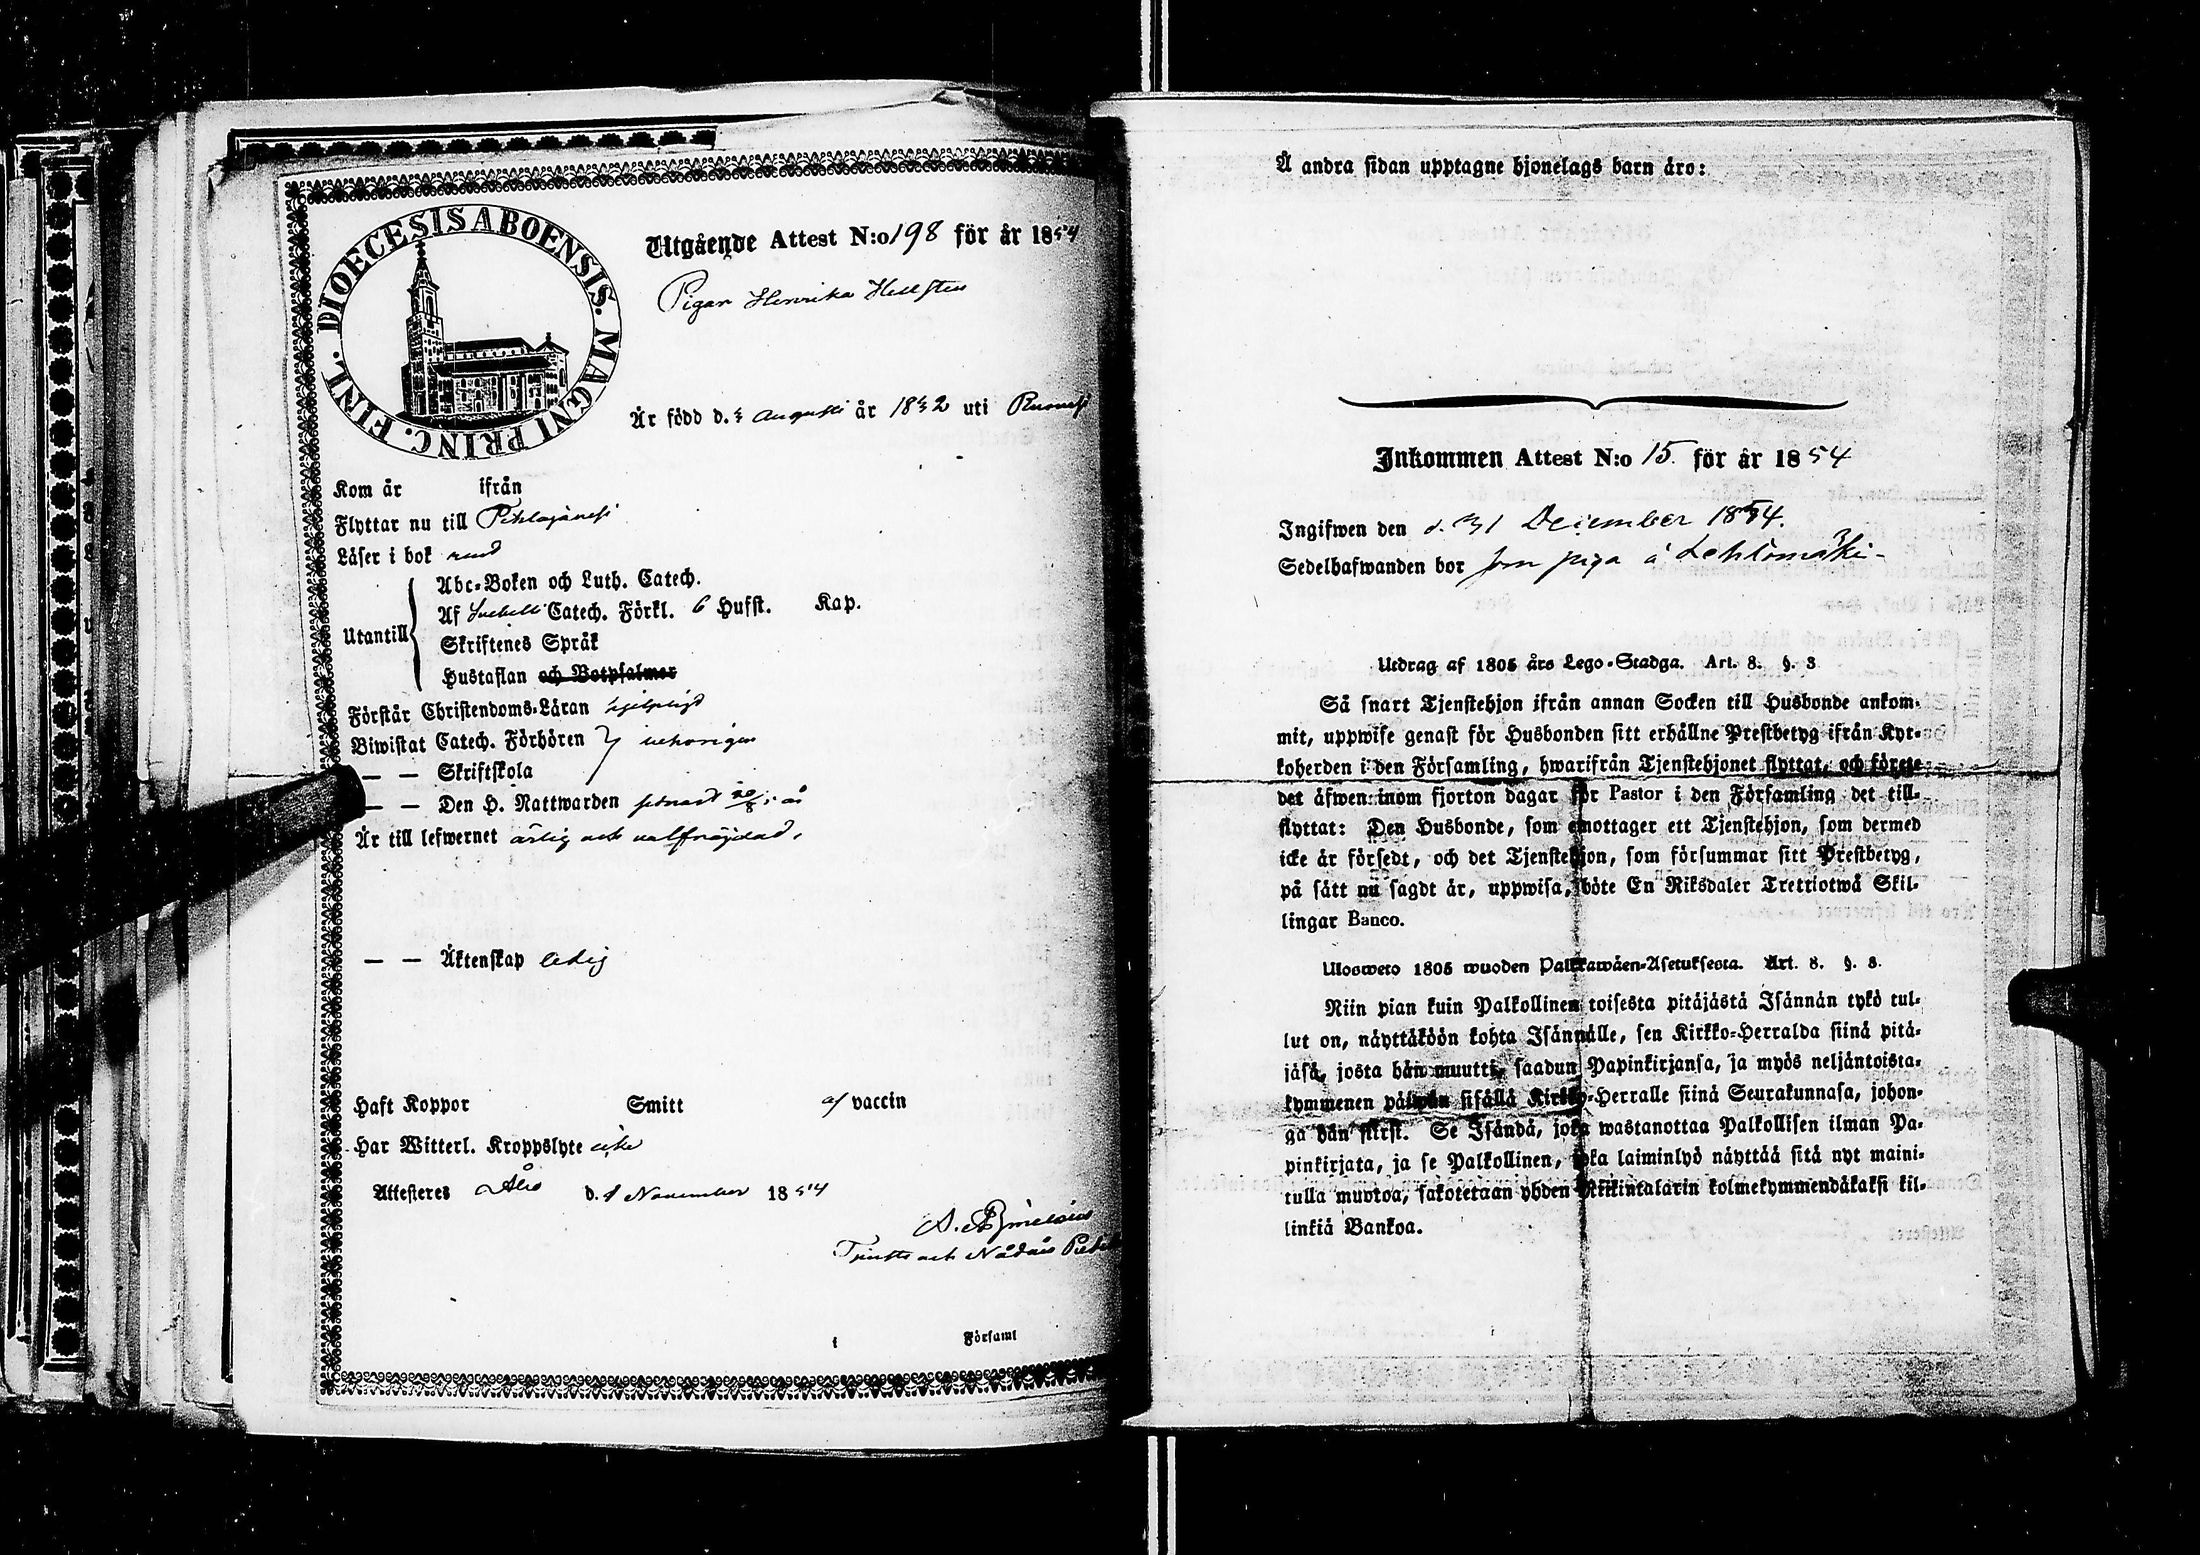 DIOECESIS ABOENSIS. MAGNI PRINC. FINL.
Utgående Attest N:o 198 för år 1854
Pigan Henrika Hellsten
Är född d. Augusti år 1832 uti
Kom år ifrån
Flyttar nu till
Läser i bok rent
Utantill
Abc-Boken och Luth. Catech.
Af Svebelii Catech. Förkl. 6 Hufst. Kap.
Skriftenes Språk
Hustaflan och Botpsalmer
Förstår Christendoms-Läran hjelpligt
Biwistat Catech. Förhören
— — Skriftskola
— — Den H. Nattwarden senast 20/8 i år
Är till lefwernet ärlig och välfräjdad,
— — Äktenskap ledig
Haft Koppor Smitt af vaccin
Har Witterl. Kroppslyte icke
Attesteres Åbo d. 1 November 1854
i Församl
Å andra sidan upptagne hjonelags barn äro:
Inkommen Attest N:o 15. för år 1854
Ingifwen den d. 31 December 1854.
Sedelhafwanden bor som piga å Lehtomäki-
Utdrag af 1805 års Lego-Stadga. Art. 8. §. 3
Så snart Tjenstehjon ifrån annan Socken till Husbonde ankom-
mit, uppwise genast för Husbonden sitt erhållne Prestbetyg ifrån Kyr-
koherden i den Församling, hwarifrån Tjenstehjonet flyttat, och förete
det äfwen inom fjorton dagar för Pastor i den Församling det till-
flyttat: Den Husbonde, som emottager ett Tjenstehjon, som dermed
icke är försedt, och det Tjenstehjon, som försummar sitt Prestbetyg,
på sätt nu sagdt är, uppwisa, böte En Riksdaler Trettiotwå Skil-
lingar Banco.
Ulosweto 1805 wuoden Palkkawäen-Asetuksesta. Art. 8. §. 3.
Niin pian kuin Palkollinen toisesta pitäjästä Isännän tykö tul-
lut on, näyttäköön kohta Isännälle, sen Kirkko-Herralda siinä pitä-
jäsä, josta hän muutti, saadun Papinkirjansa, ja myös neljäntoista-
kymmenen päiwän sisällä Kirkko-Herralle siinä Seurakunnasa, johon-
ga hän siirst. Se Isändä, joka wastanottaa Palkollisen ilman Pa-
pinkirjata, ja se Palkollinen, joka laiminlyö näyttää sitä nyt maini-
tulla muotoa, sakotetaan yhden Riikintalarin kolmekymmendäkaksi kil-
linkiä Bankoa.